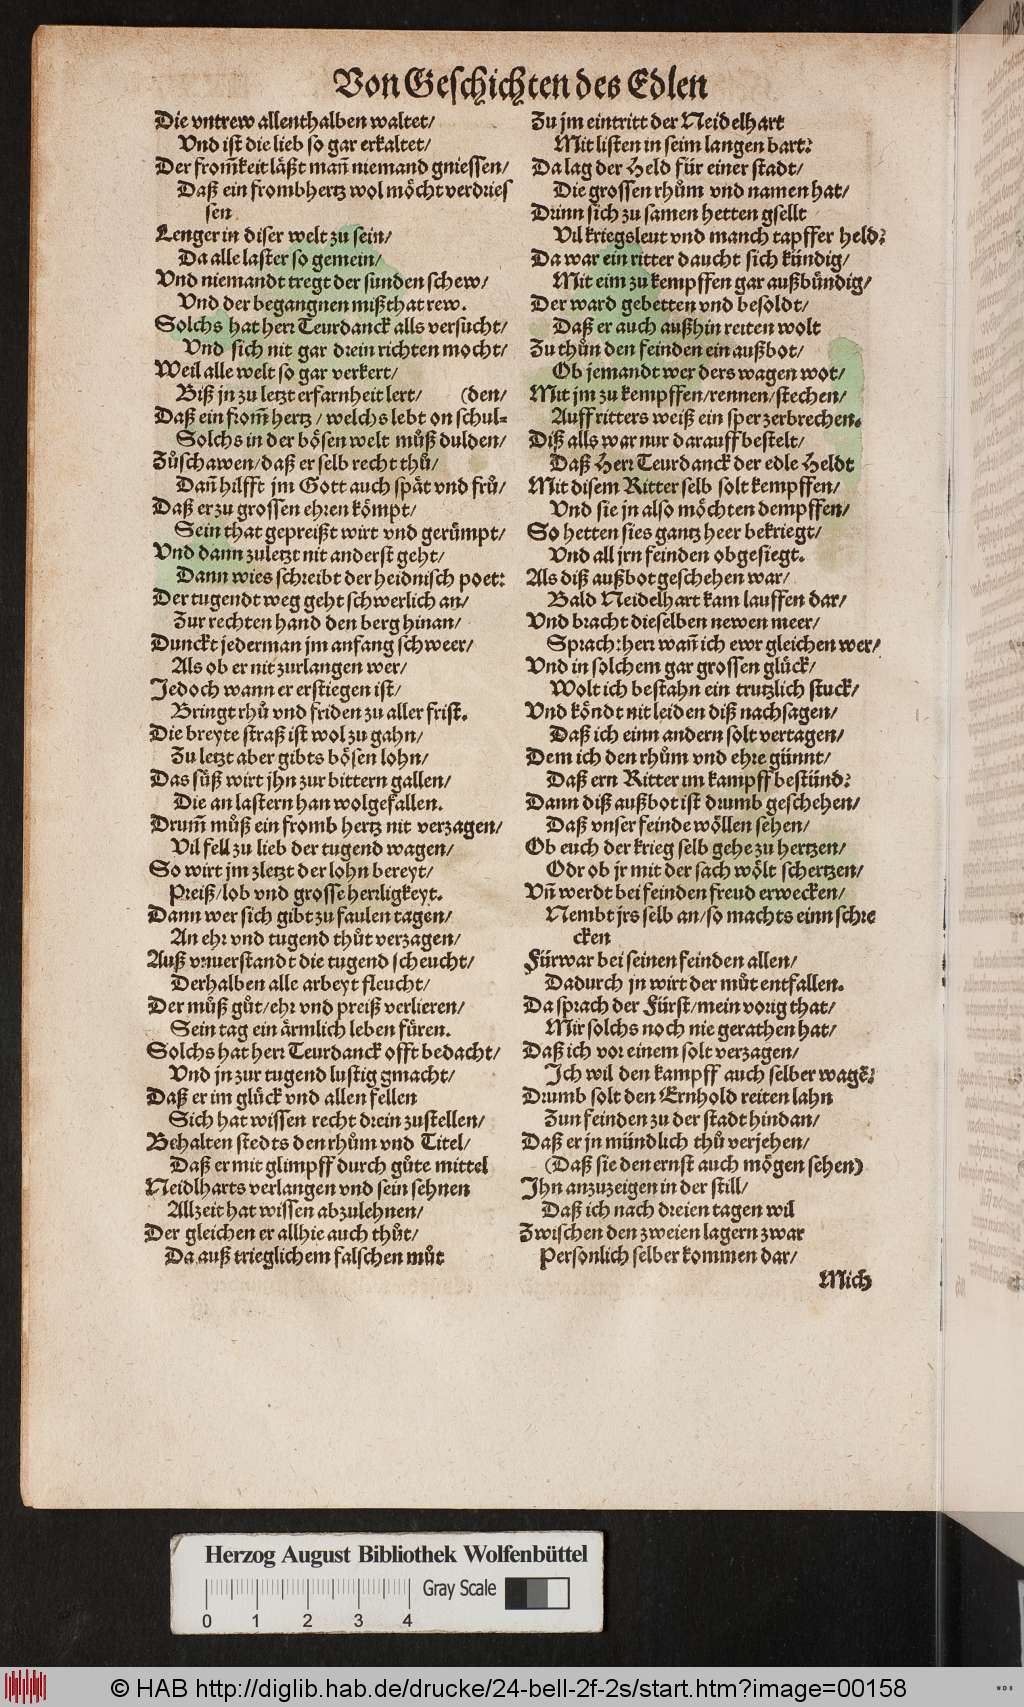 Von Geschichten des Edlen
Die vntrew allenthalben waltet/
Vnd ist die lieb so gar erkaltet/
Der from̃keit läßt mañ niemand gniessen/
Daß ein frombhertz wol möcht verdries
sen
Lenger in diser welt zu sein/
Da alle laster so gemein/
Vnd niemandt tregt der sunden schew/
Vnd der begangnen mißthat rew.
Solchs hat herr Teurdanck alls versücht/
Vnd sich nit gar drein richten mocht/
Weil alle welt so gar verkert/
Biß jn zu letzt erfarnheit lert/ (den/
Daß ein from̃ hertz/ welchs lebt on schul=
Solchs in der bösen welt můß dulden/
Zůschawen/ daß er selb recht thů/
Dañ hilfft jm Gott auch spät vnd frů/
Daß er zu grossen ehren kömpt/
Sein that gepreißt wirt vnd gerümpt/
Vnd dann zuletzt nit anderst geht/
Dann wies schreibt der heidnisch poet:
Der tugendt weg geht schwerlich an/
Zur rechten hand den berg hinan/
Dunckt jederman jm anfang schweer/
Als ob er nit zurlangen wer/
Jedoch wann er erstiegen ist/
Bringt rhů vnd friden zu aller frist.
Die breyte straß ist wol zu gahn/
Zu letzt aber gibts bösen lohn/
Das süß wirt jhn zur bittern gallen/
Die an lastern han wolgefallen.
Drum̃ můß ein fromb hertz nit verzagen/
Vil fell zu lieb der tugend wagen/
So wirt jm zletzt der lohn bereyt/
Preiß/ lob vnd grosse herrligkeyt.
Dann wer sich gibt zu faulen tagen/
An ehr vnd tugend thůt verzagen/
Auß vnuerstandt die tugend scheucht/
Derhalben alle arbeyt fleucht/
Der můß gůt/ ehr vnd preiß verlieren/
Sein tag ein ärmlich leben füren.
Solchs hat herr Teurdanck offt bedacht/
Vnd jn zur tugend lustig gmacht/
Daß er im glück vnd allen fellen
Sich hat wissen recht drein zustellen/
Behalten stedts den rhům vnd Titel/
Daß er mit glimpff durch gůte mittel
Neidlharts verlangen vnd sein sehnen
Allzeit hat wissen abzulehnen/
Der gleichen er allhie auch thůt/
Da auß trieglichem falschen můt
Zu jm eintritt der Neidelhart
Mit listen in seim langen bart:
Da lag der Held für einer stadt/
Die grossen rhům vnd namen hat/
Drinn sich zu samen hetten gsellt
Vil kriegsleut vnd manch tapffer held:
Da war ein ritter daucht sich kündig/
Mit eim zu kempffen gar außbündig/
Der ward gebetten vnd besoldt/
Daß er auch außhin reiten wolt
Zu thůn den feinden ein außbot/
Ob jemandt wer ders wagen wot/
Mit jm zu kempffen/ rennen/ stechen/
Auff ritters weiß ein sper zerbrechen.
Diß alls war nur darauff bestelt/
Daß Herr Teurdanck der edle Heldt
Mit disem Ritter selb solt kempffen/
Vnd sie jn also möchten dempffen/
So hetten sies gantz heer bekriegt/
Vnd all jrn feinden obgesiegt.
Als diß außbot geschehen war/
Bald Neidelhart kam lauffen dar/
Vnd bracht dieselben newen meer/
Sprach: herr wañ ich ewr gleichen wer/
Vnd in solchem gar grossen glück/
Wolt ich bestahn ein trutzlich stuck/
Vnd köndt nit leiden diß nachsagen/
Daß ich einn andern solt vertagen/
Dem ich den rhům vnd ehre günnt/
Daß ern Ritter im kampff bestünd:
Dann diß außbot ist drumb geschehen/
Daß vnser feinde wöllen sehen/
Ob euch der krieg selb gehe zu hertzen/
Odr ob jr mit der sach wölt schertzen/
Vñ werdt bei feinden freud erwecken/
Nembt jrs selb an/ so machts einn schre
cken
Fürwar bei seinen feinden allen/
Dadurch jn wirt der můt entfallen.
Da sprach der Fürst/ mein vorig that/
Mir solchs noch nie gerathen hat/
Daß ich vor einem solt verzagen/
Ich wil den kampff auch selber wagẽ:
Drumb solt den Ernhold reiten lahn
Zun feinden zu der stadt hindan/
Daß er jn mündlich thů verjehen/
(Daß sie den ernst auch mögen sehen)
Ihn anzuzeigen in der still/
Daß ich nach dreien tagen wil
Zwischen den zweien lagern zwar
Persönlich selber kommen dar/
Mich
Herzog August Bibliothek Wolfenbüttel
Gray Scale
0 1 2 3 4
© HAB http://diglib.hab.de/drucke/24-bell-2f-2s/start.htm?image=00158